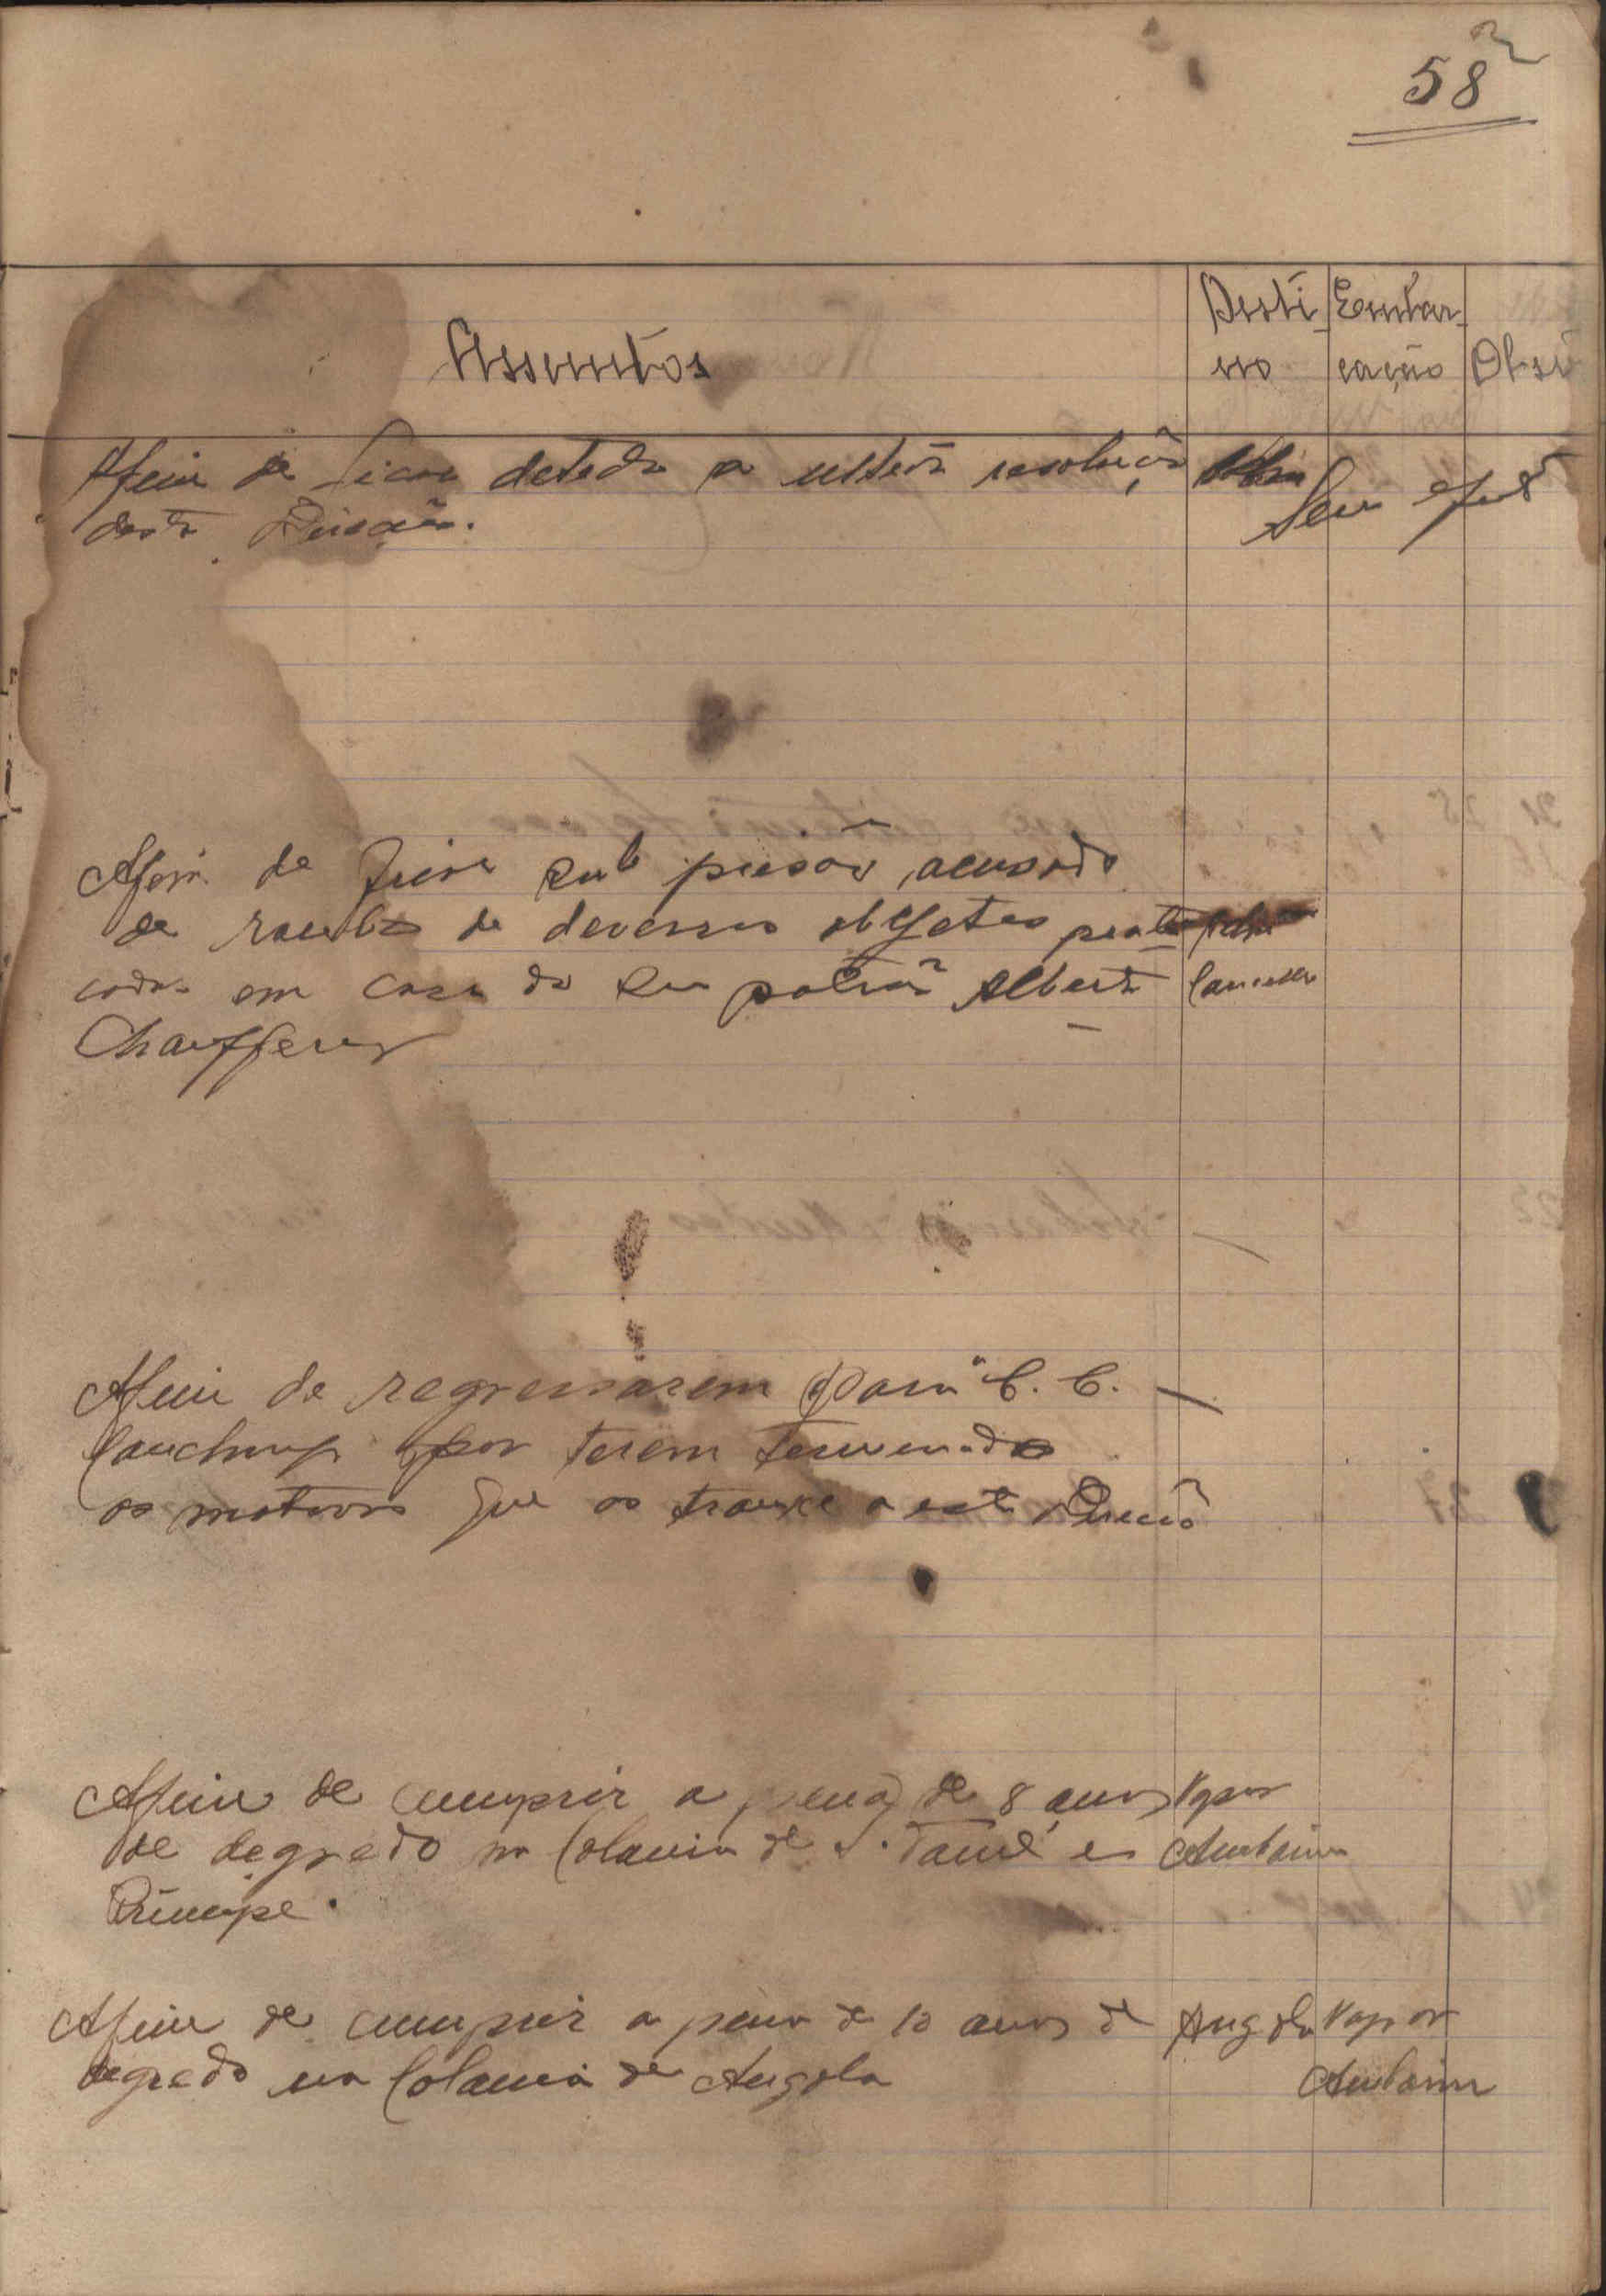 58
Assuntos
Desti-
no
Embar-
cação
Obser
Afim de ficar detido a ulterior resolução
desta Direcção.
Sem efeito
Afim de ficar sub prisão, acusado
de roubo de deversos objetos prati
cados em casa do seu patrão Alberto
Chauffeur
Afim de regressarem para C. C.
por terem terminado
os motivos que os trouxe a esta Direcção
Afim de cumprir a pena de 8 anos
de degredo na Colonia de S. Tomé e
Principe.
Vapor
Amboim
Afim de cumprir a pena de 10 anos de
degredo na Colonia de Angola
Angola
Vapor
Amboim